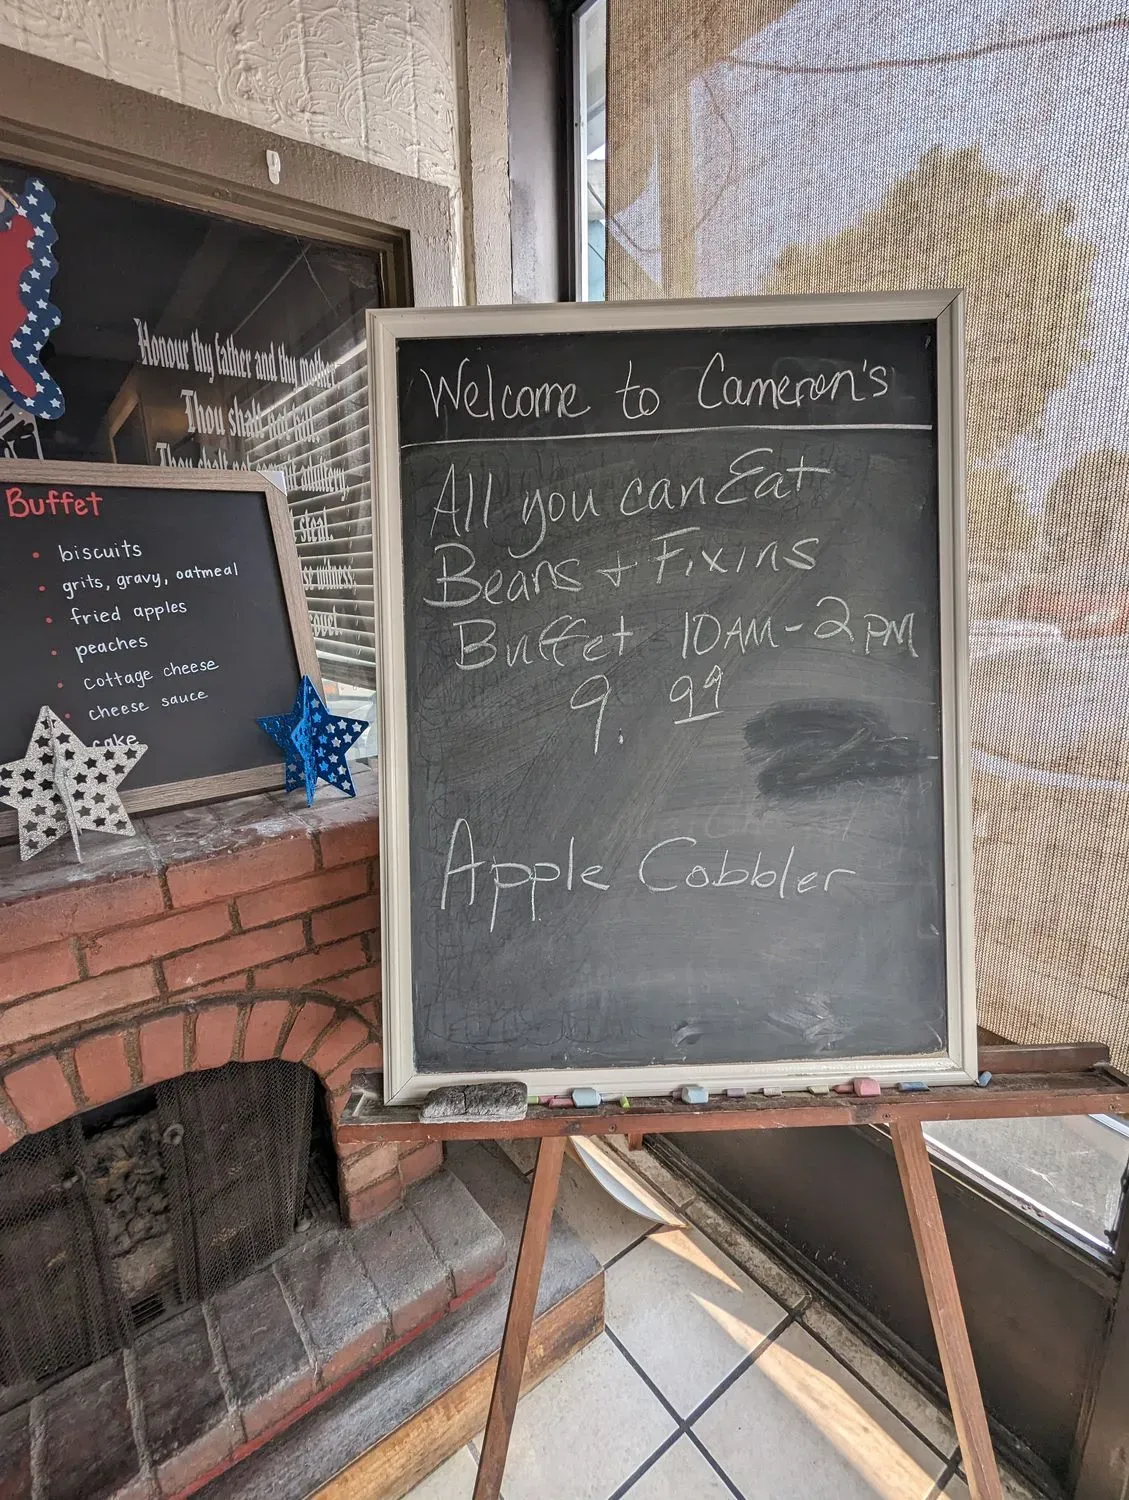 Honour thy father and thy mother
Thou shalt not kill.
Thou shalt not commit adultery.
steal.
witness
Buffet
biscuits
grits, gravy, oatmeal
fried apples
peaches
cottage cheese
cheese sauce
cake
Welcome to Cameron's
All you can Eat
Beans + Fixins
Buffet 10AM-2PM
9.99
Apple Cobbler